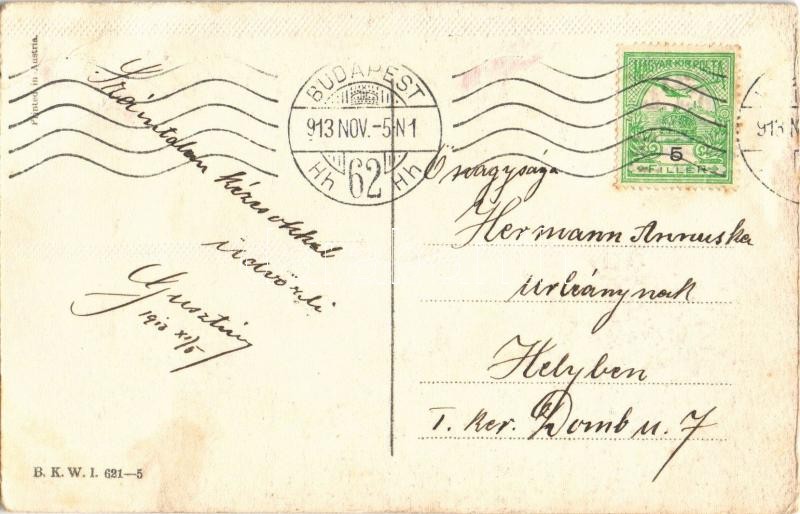 Printed in Austria.
Számtalan kézcsókkal
üdvözli
Gusztáv
1913 XI/5
B. K. W. I. 621—5
BUDAPEST
913 NOV.-5·N1
Hh 62 Hh
MAGYAR KIR. POSTA
5
FILLER
913 N
Őnagysága
Hermann Annuska
úrleánynak
Helyben
I. ker. Domb u. 7